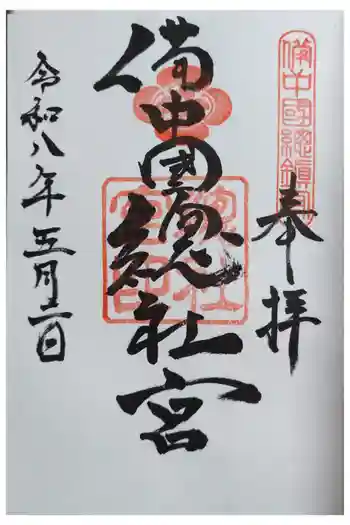 備中國總鎮守
奉拝
備中國總社宮
總社宮印
令和八年五月三日